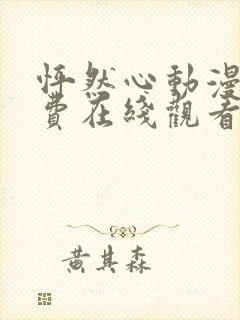 怦然心動漫
費在綫觀看
黃其森